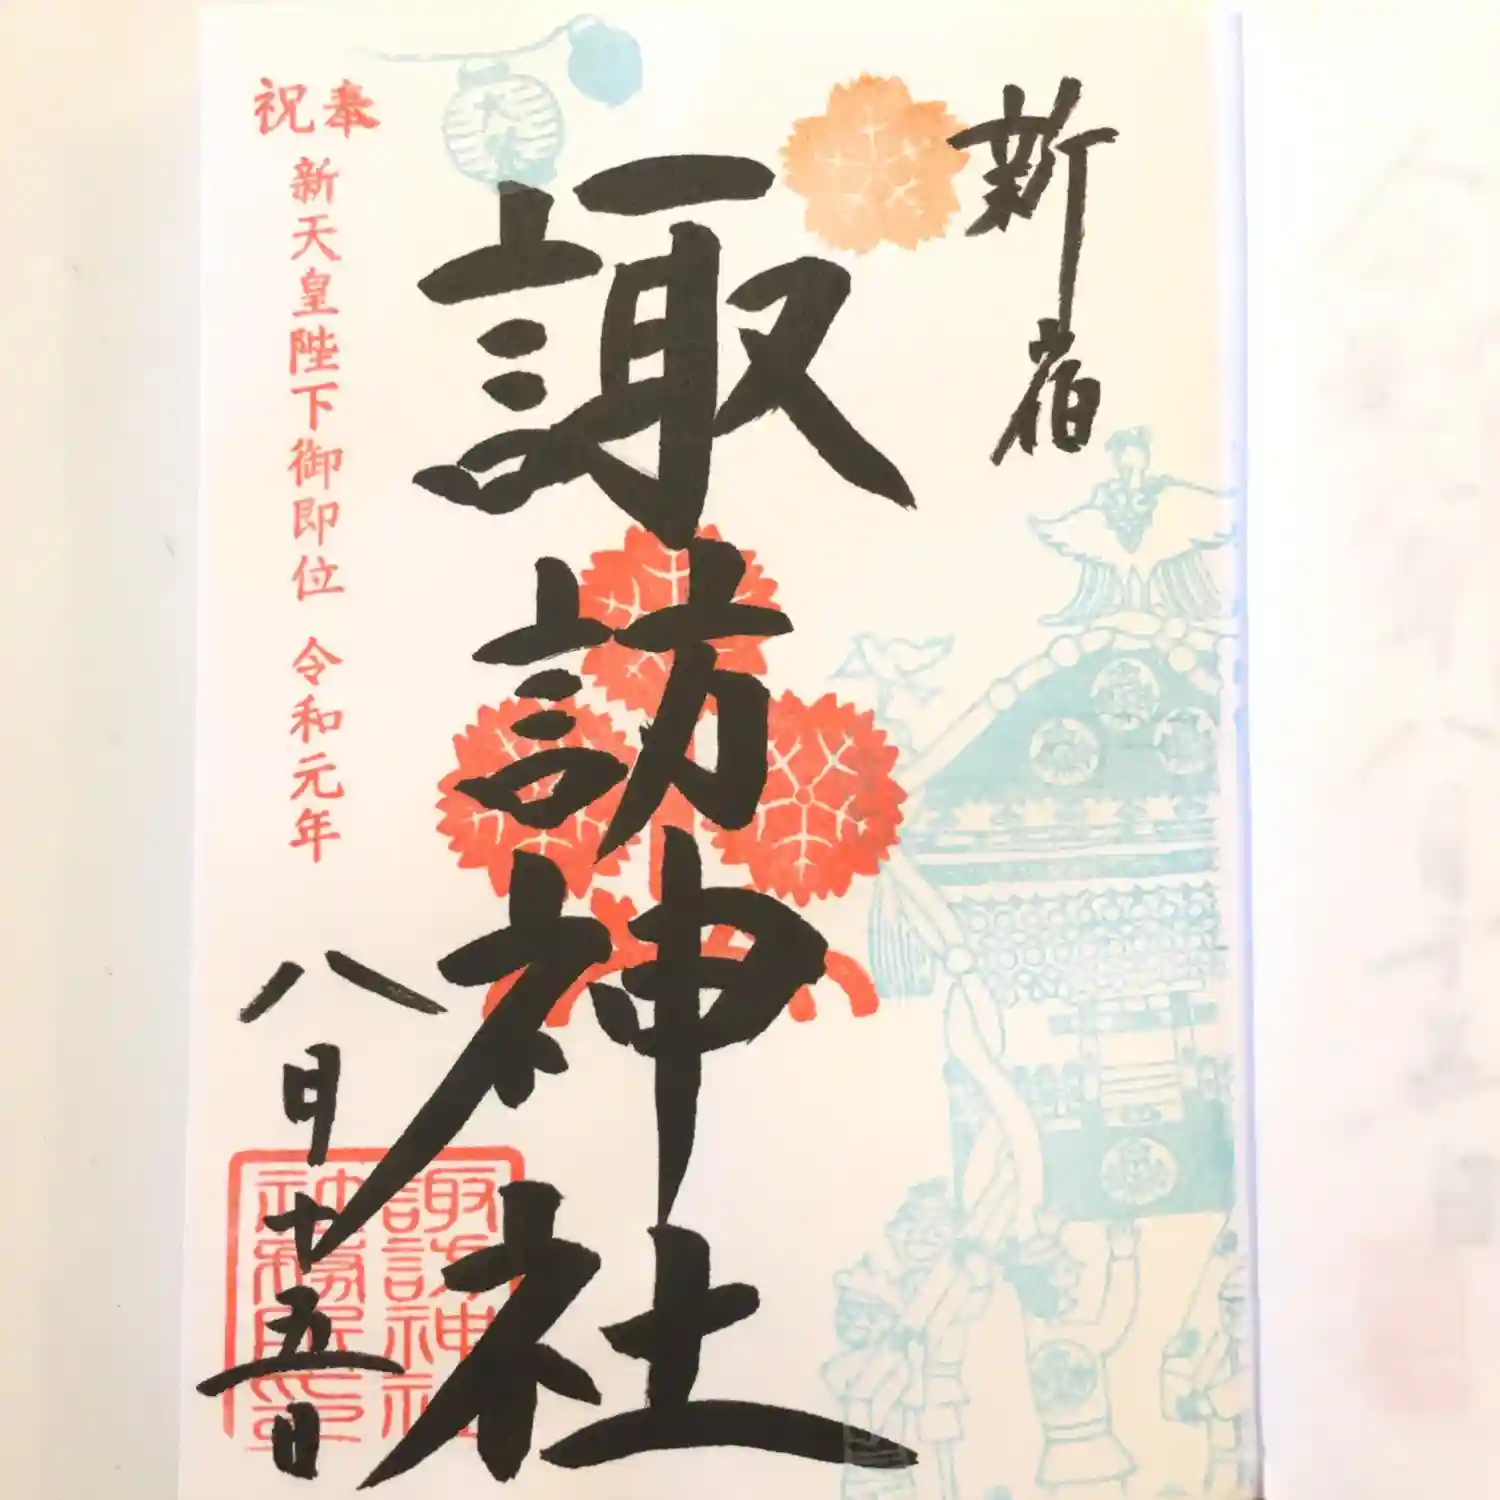 新宿
諏訪神社
奉祝
新天皇陛下御即位 令和元年
八月十五日
諏訪神社
神務所印